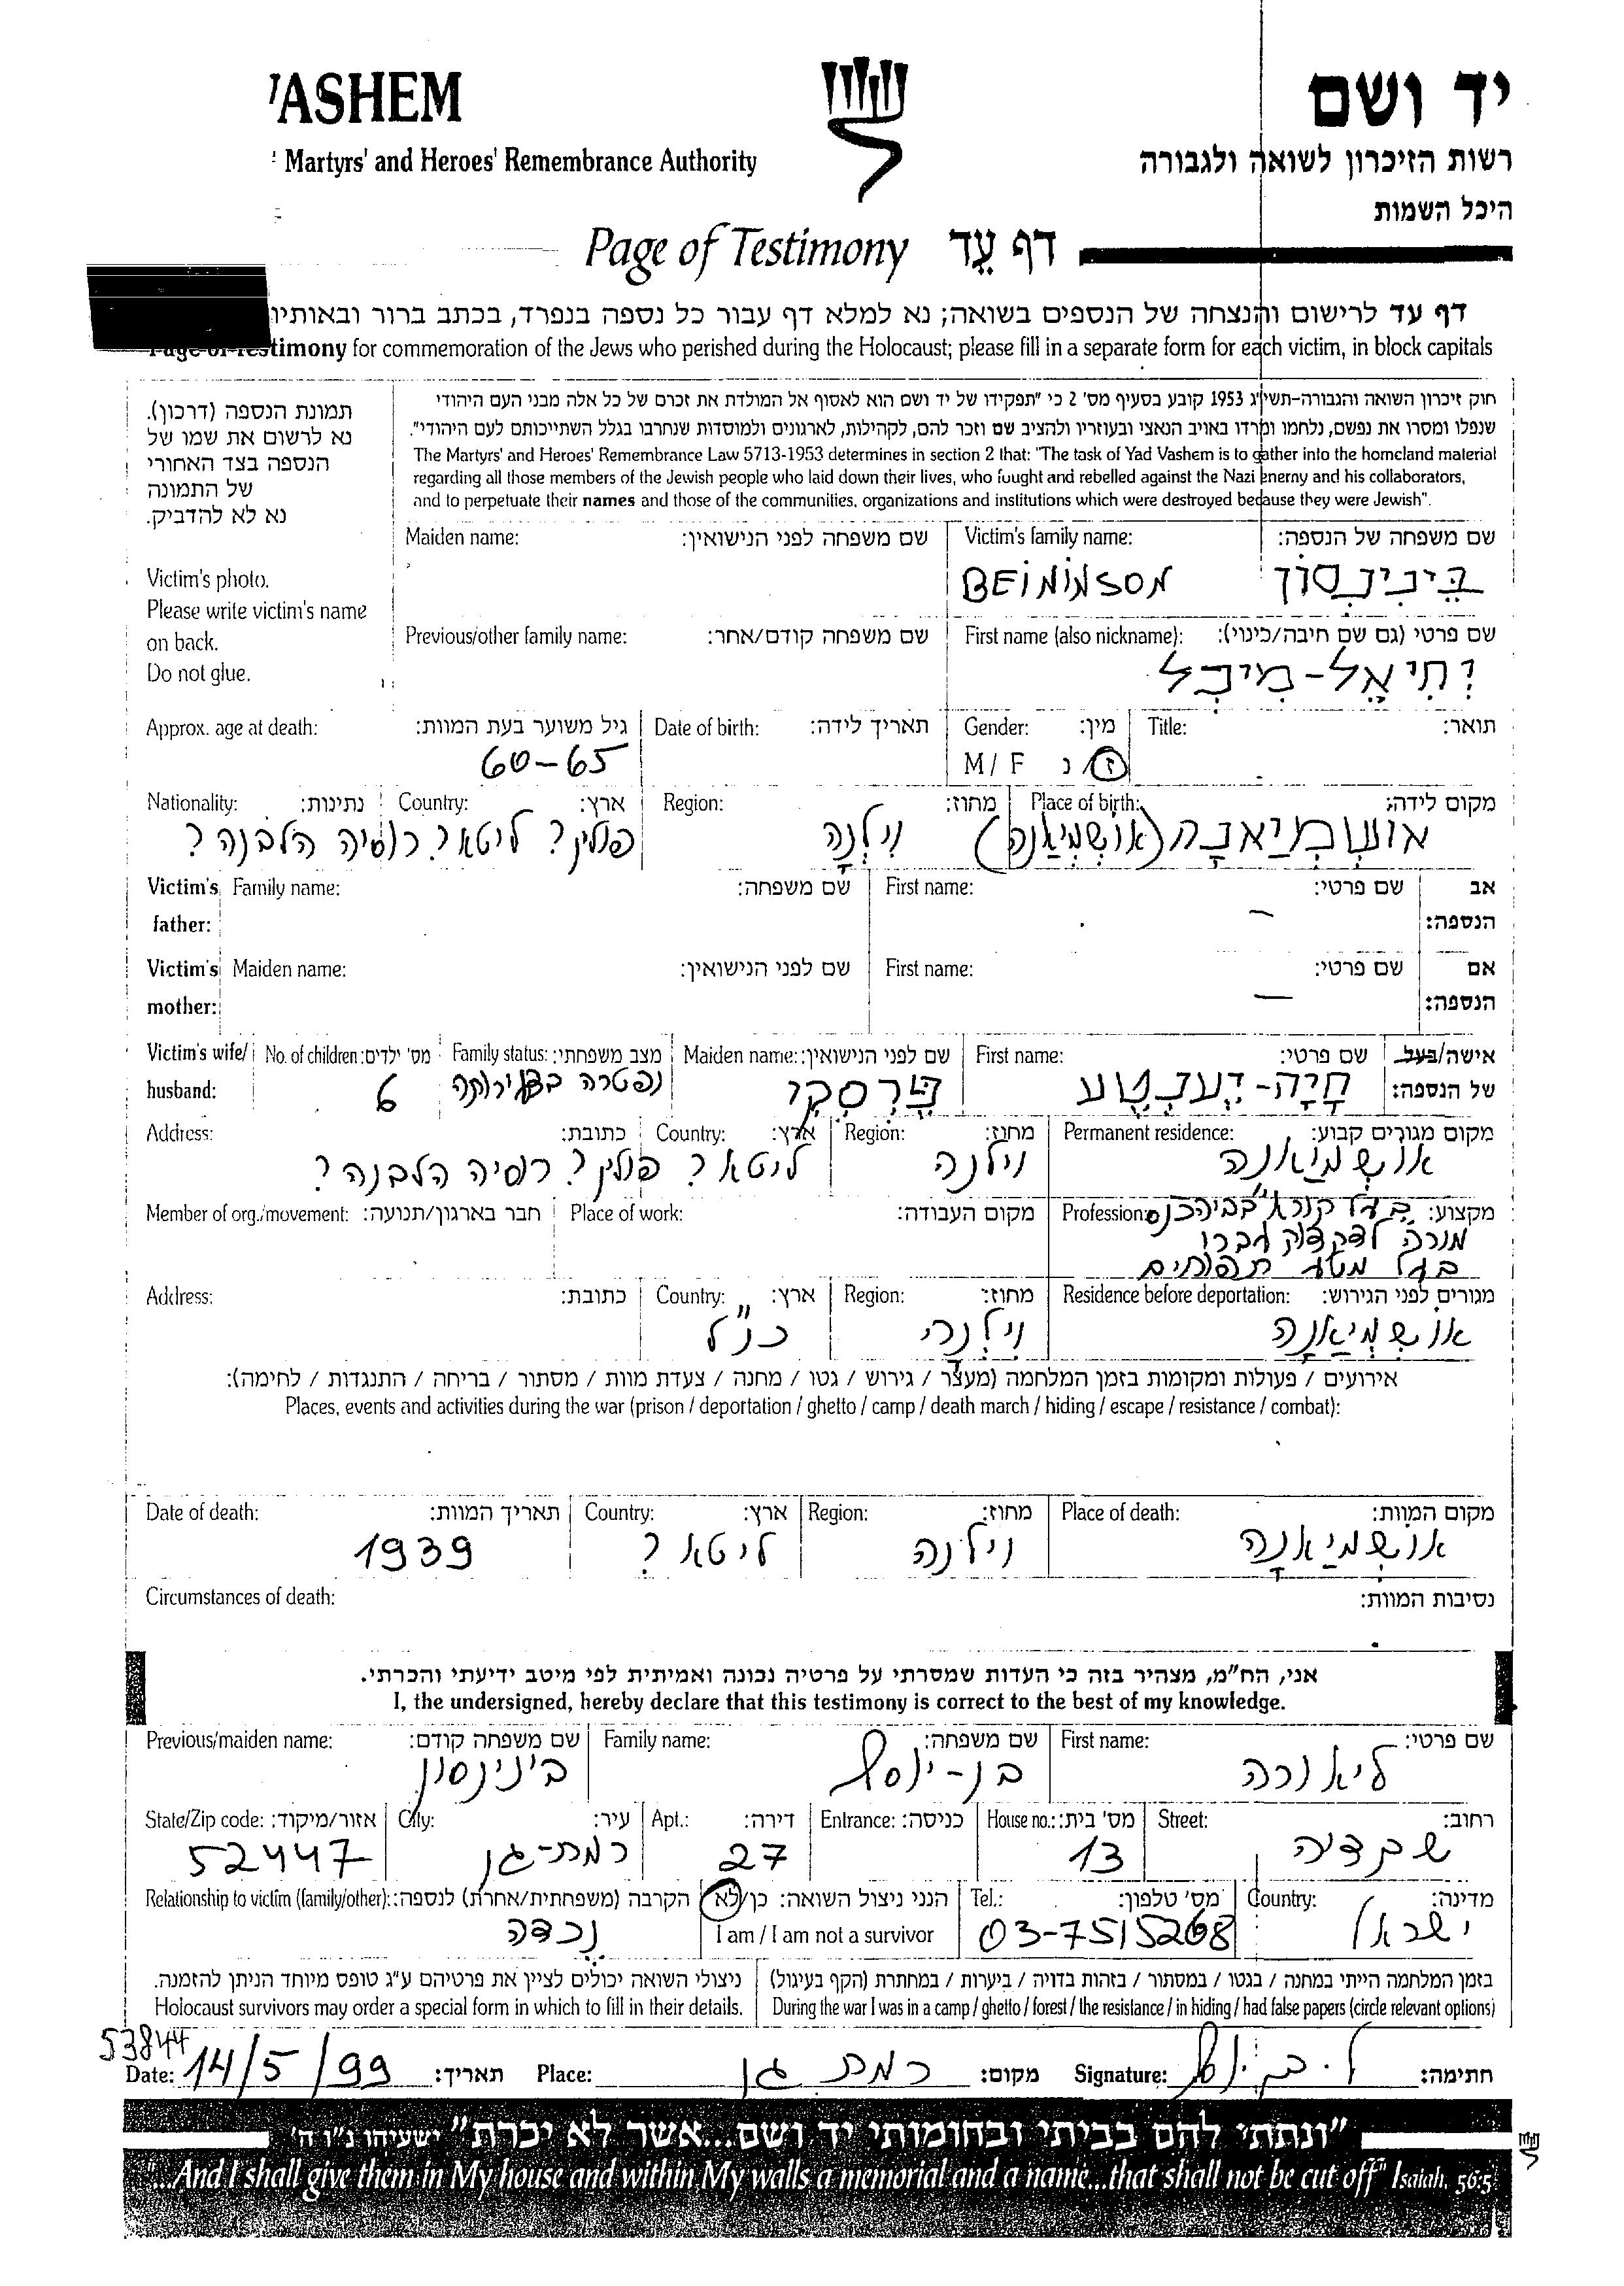 'ASHEM
Martyrs' and Heroes' Remembrance Authority
יד ושם
רשות הזיכרון לשואה ולגבורה
היכל השמות
Page of Testimony דף עֵד
דף עד לרישום והנצחה של הנספים בשואה; נא למלא דף עבור כל נספה בנפרד, בכתב ברור ובאותיו
Page of Testimony for commemoration of the Jews who perished during the Holocaust; please fill in a separate form for each victim, in block capitals
תמונת הנספה (דרכון).
נא לרשום את שמו של
הנספה בצד האחורי
של התמונה
נא לא להדביק.
Victim's photo.
Please write victim's name
on back.
Do not glue.
חוק זיכרון השואה והגבורה-תשי"ג 1953 קובע בסעיף מס' 2 כי "תפקידו של יד ושם הוא לאסוף אל המולדת את זכרם של כל אלה מבני העם היהודי
שנפלו ומסרו את נפשם, נלחמו ומרדו באויב הנאצי ובעוזריו ולהציב שם וזכר להם, לקהילות, לארגונים ולמוסדות שנחרבו בגלל השתייכותם לעם היהודי".
The Martyrs' and Heroes' Remembrance Law 5713-1953 determines in section 2 that: "The task of Yad Vashem is to gather into the homeland material
regarding all those members of the Jewish people who laid down their lives, who fought and rebelled against the Nazi enemy and his collaborators,
and to perpetuate their names and those of the communities, organizations and institutions which were destroyed because they were Jewish".
Maiden name: שם משפחה לפני הנישואין: Victim's family name: שם משפחה של הנספה:
BEiNiNSON בֵּינִינְסוֹן
Previous/other family name: שם משפחה קודם/אחר: First name (also nickname): שם פרטי (גם שם חיבה/כינוי):
יְחִיאֵל-מִיכְל
Approx. age at death: גיל משוער בעת המוות: Date of birth: תאריך לידה: Gender: מין: Title: תואר:
60-65 M / F ז / נ
Nationality: נתינות: Country: ארץ: Region: מחוז: Place of birth: מקום לידה:
פולין? ליטא? רוסיה הלבנה? וִילְנָה אוֹשְׁמִיַאנָה (אוֹשְׁמְיַאנָה)
Victim's father: Family name: שם משפחה: First name: שם פרטי: אב הנספה:
—
Victim's mother: Maiden name: שם לפני הנישואין: First name: שם פרטי: אם הנספה:
—
Victim's wife/husband: No. of children: מס' ילדים: Family status: מצב משפחתי: Maiden name: שם לפני הנישואין: First name: שם פרטי: אישה/בעל של הנספה:
6 נפטרה בצעירותה פְּרֶסְקִי חָיָה-
Address: כתובת: Country: ארץ: Region: מחוז: Permanent residence: מקום מגורים קבוע:
ליטא? פולין? רוסיה הלבנה? וילנה אוֹשְׁמִיַאנָה
Member of org./movement: חבר בארגון/תנועה: Place of work: מקום העבודה: Profession: מקצוע:
בעל קורא בביהכנ"ס
מורה לדקדוק עברי
בעל מטע תפוחים
Address: כתובת: Country: ארץ: Region: מחוז: Residence before deportation: מגורים לפני הגירוש:
כנ"ל וִילְנָה אוֹשְׁמְיַאנָה
אירועים / פעולות ומקומות בזמן המלחמה (מעצר / גירוש / גטו / מחנה / צעדת מוות / מסתור / בריחה / התנגדות / לחימה):
Places, events and activities during the war (prison / deportation / ghetto / camp / death march / hiding / escape / resistance / combat):
Date of death: תאריך המוות: Country: ארץ: Region: מחוז: Place of death: מקום המוות:
1939 ליטא? וילנה אוֹשְׁמִיַאנָה
Circumstances of death: נסיבות המוות:
אני, הח"מ, מצהיר בזה כי העדות שמסרתי על פרטיה נכונה ואמיתית לפי מיטב ידיעתי והכרתי.
I, the undersigned, hereby declare that this testimony is correct to the best of my knowledge.
Previous/maiden name: שם משפחה קודם: Family name: שם משפחה: First name: שם פרטי:
בינינסון בן-יוסף ליאורה
State/Zip code: אזור/מיקוד: City: עיר: Apt.: דירה: Entrance: כניסה: House no.: מס' בית: Street: רחוב:
52447 רמת-גן 27 13 שקדיה
Relationship to victim (family/other): הקרבה (משפחתית/אחרת) לנספה: הנני ניצול השואה: כן/לא Tel.: מס' טלפון: Country: מדינה:
נֶכדה I am / I am not a survivor 03-7515268 ישראל
ניצולי השואה יכולים לציין את פרטיהם ע"ג טופס מיוחד הניתן להזמנה. בזמן המלחמה הייתי במחנה / בגטו / במסתור / בזהות בדויה / ביערות / במחתרת (הקף בעיגול)
Holocaust survivors may order a special form in which to fill in their details. During the war I was in a camp / ghetto / forest / the resistance / in hiding / had false papers (circle relevant options)
53844
Date: 14/5/99 תאריך: Place: רמת גן מקום: Signature: ל. בן יוסף חתימה:
"ונתתי להם בביתי ובחומותי יד ושם...אשר לא יכרת" ישעיהו נ"ו ה'
"...And I shall give them in My house and within My walls a memorial and a name...that shall not be cut off" Isaiah, 56:5